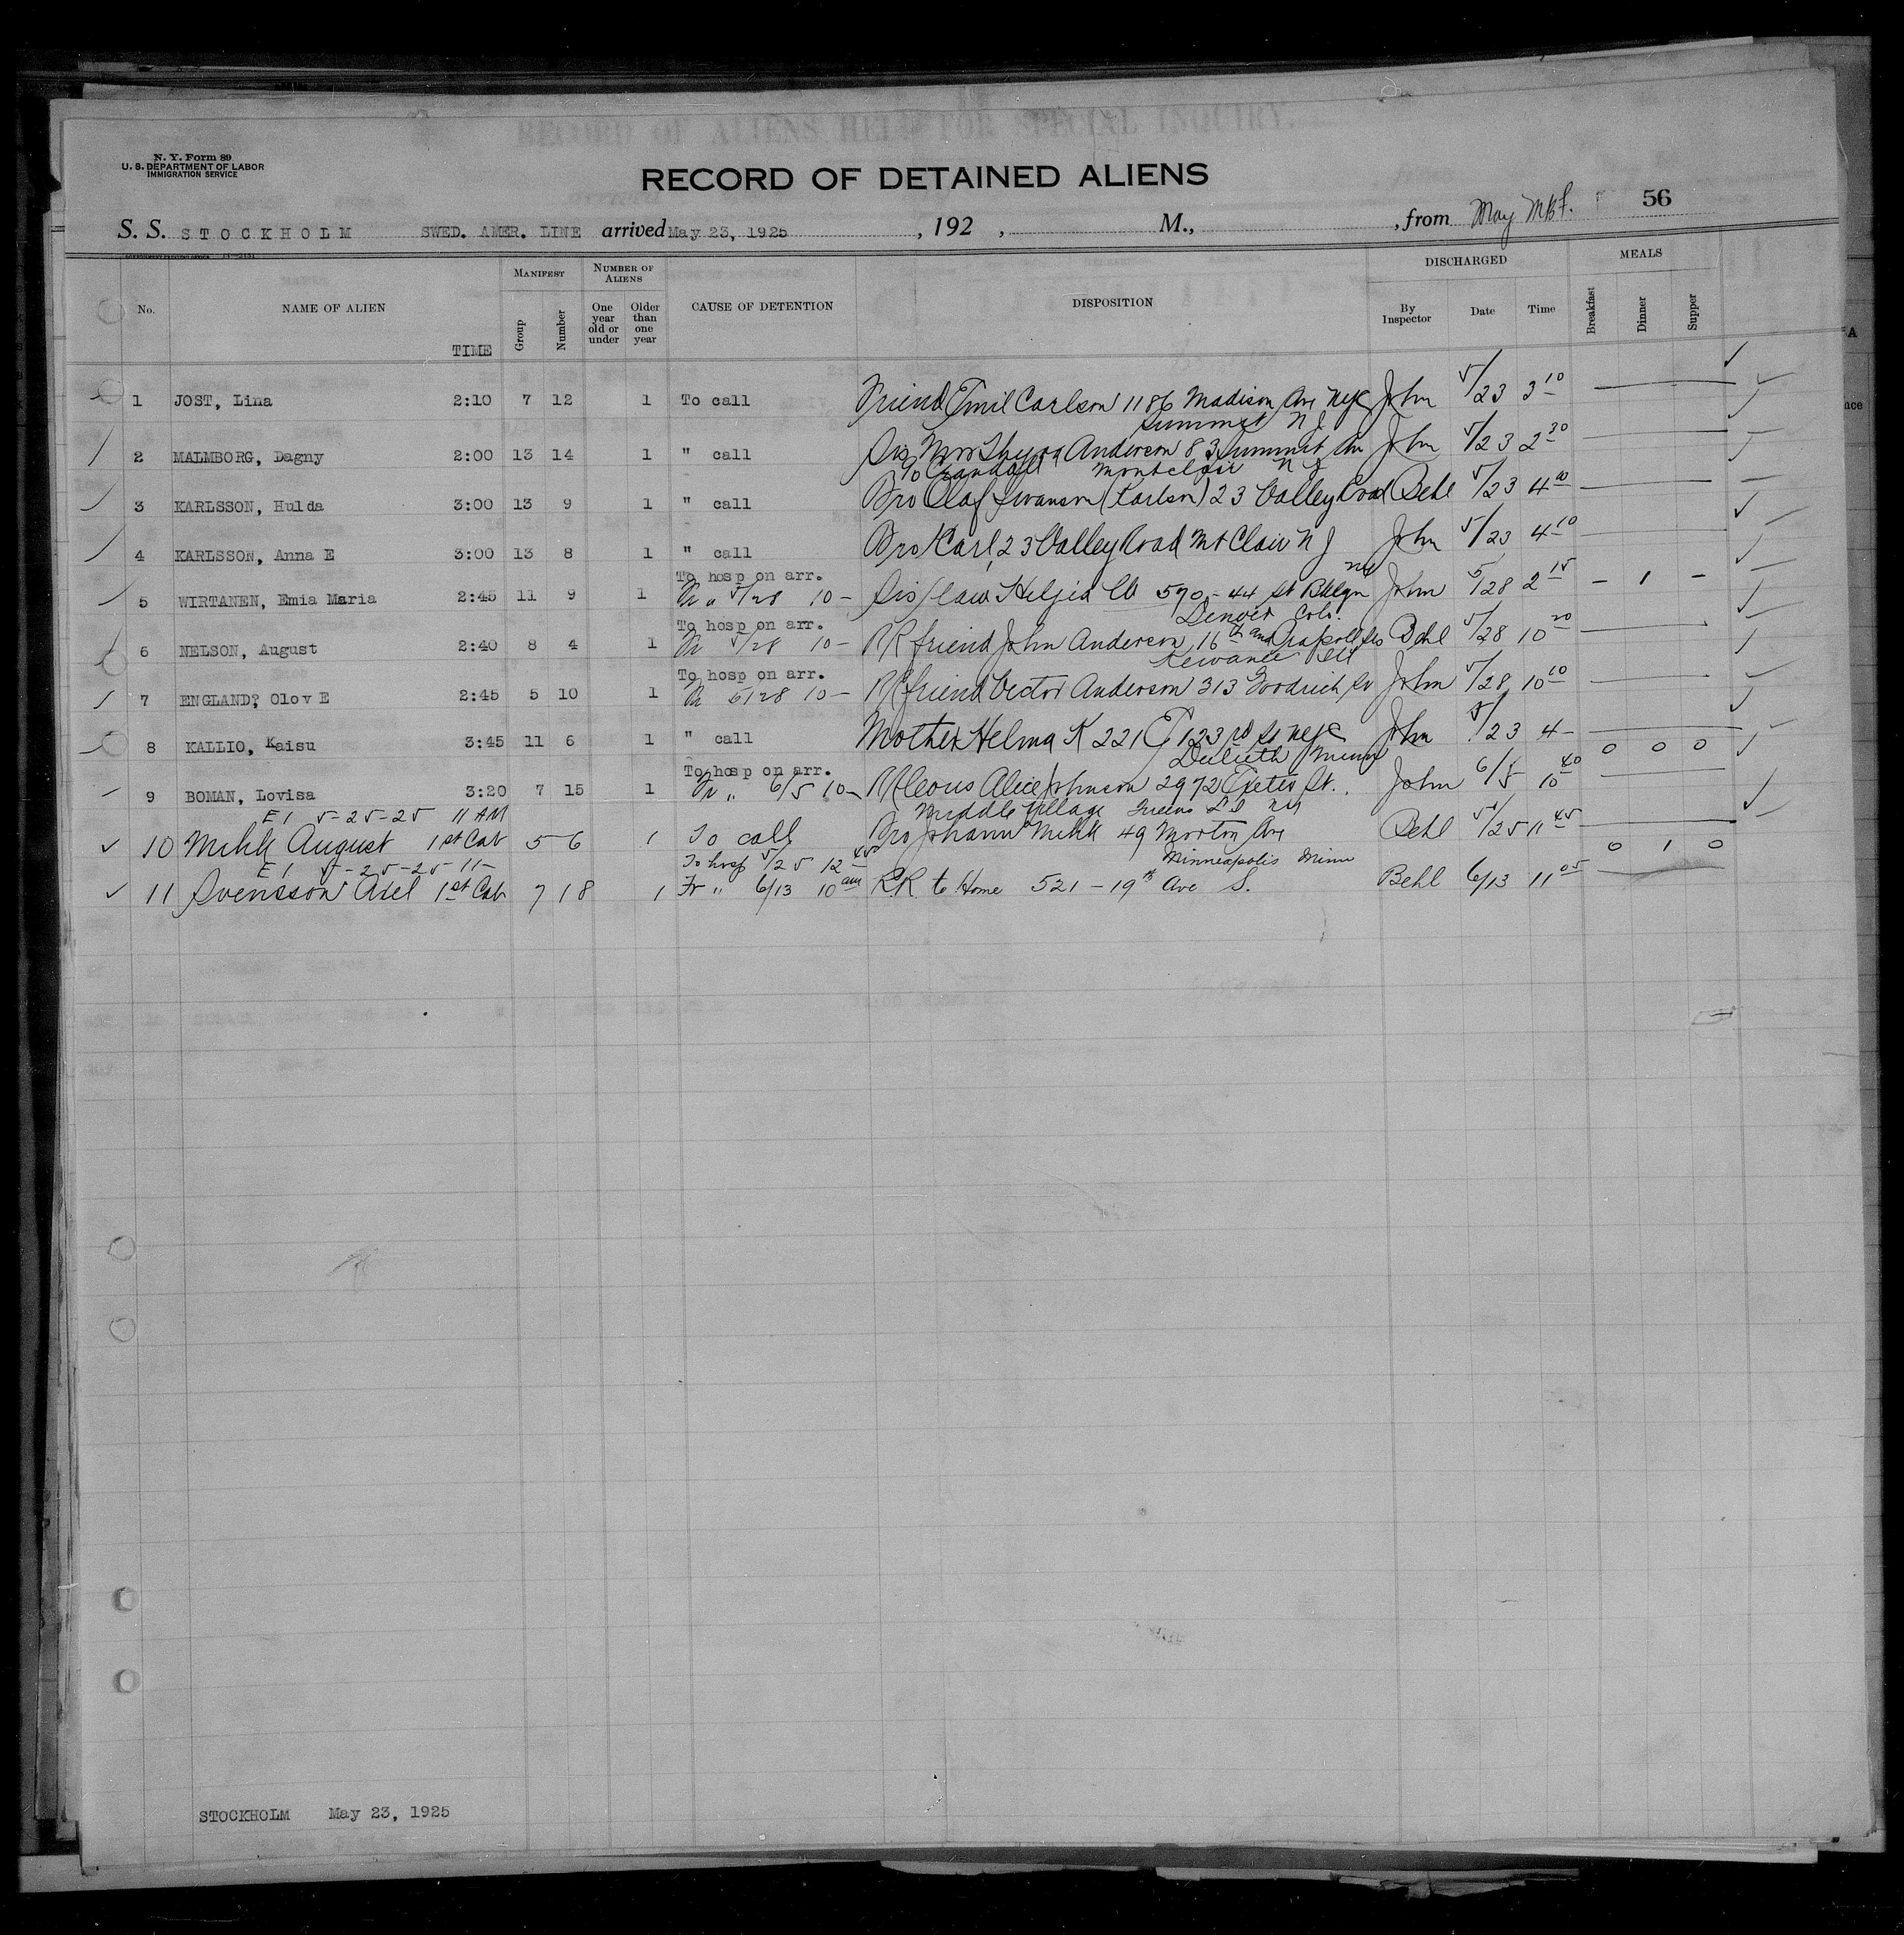 N. Y. Form 89
U. S. DEPARTMENT OF LABOR
IMMIGRATION SERVICE
RECORD OF ALIENS HELD FOR SPECIAL INQUIRY.
RECORD OF DETAINED ALIENS
56
S. S. STOCKHOLM SWED. AMER. LINE arrived May 23, 1925 , 192 , M., , from May
No. NAME OF ALIEN TIME MANIFEST Group Number NUMBER OF ALIENS One year old or under Older than one year CAUSE OF DETENTION DISPOSITION DISCHARGED By Inspector Date Time MEALS Breakfast Dinner Supper
1 JOST, Lina 2:10 7 12 1 To call Friend Emil Carlson 1186 Madison Ave NYC John 5/23 3 10
Summit N J
2 MALMBORG, Dagny 2:00 13 14 1 " call Sis Mrs Anderson 83 Summit Av John 5/23 2 30
Montclair N J
3 KARLSSON, Hulda 3:00 13 9 1 " call Bro Olaf Swanson (Karlson) 23 Valley Road Behl 5/23 4 00
4 KARLSSON, Anna E 3:00 13 8 1 " call Bro Karl, 23 Valley Road Mt Clair N J John 5/23 4 10
To hosp on arr.
5 WIRTANEN, Emia Maria 2:45 11 9 1 5/28 10- Sis/law W 570 - 44 St Bklyn NY John 5/28 2 15 - 1 -
To hosp on arr. Denver Colo.
6 NELSON, August 2:40 8 4 1 5/28 10- RR friend John Anderson, 16th and Behl 5/28 10 20
To hosp on arr. Kewanee Ill
7 ENGLAND? Olov E 2:45 5 10 1 10- RR friend Victor Anderson 313 Goodrich St John 5/28 10 10
8 KALLIO, Kaisu 3:45 11 6 1 " call Mother Helma K 221 E 123rd St NYC John 5/23 4-
To hosp on arr. Duluth Minn 0 0 0
9 BOMAN, Lovisa 3:20 7 15 1 6/5 10- RR cous Alice Johnson 2972 Exeter St. John 6/5 10 40
E I 5-25-25 11 AM Middle Village Queens L I NY
10 Mihk August 1st Cab 5 6 1 To call Bro Johann Mihk 49 Morton Ave Behl 5/25 11 45
E I 5-25-25 11- To hosp 5/25 12 45 Minneapolis Minn 0 1 0
11 Svensson Axel 1st Cab 7 18 1 Fr " 6/13 10 am RR to Home 521 - 19th Ave S. Behl 6/13 11 05
STOCKHOLM May 23, 1925